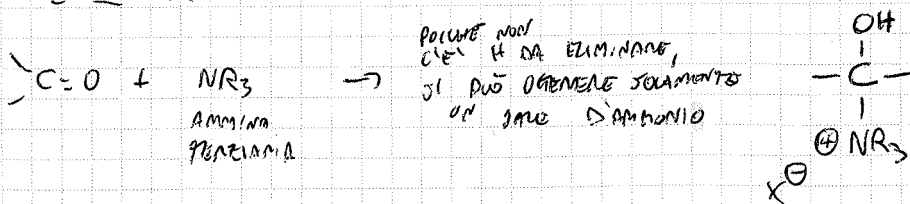 C=O + NR3 →
AMMINA
TERZIARIA
POICHÉ NON
C'È H DA ELIMINARE,
SI PUÒ OTTENERE SOLAMENTE
UN SALE D'AMMONIO
OH
— C —
⊕ NR3
X⊖